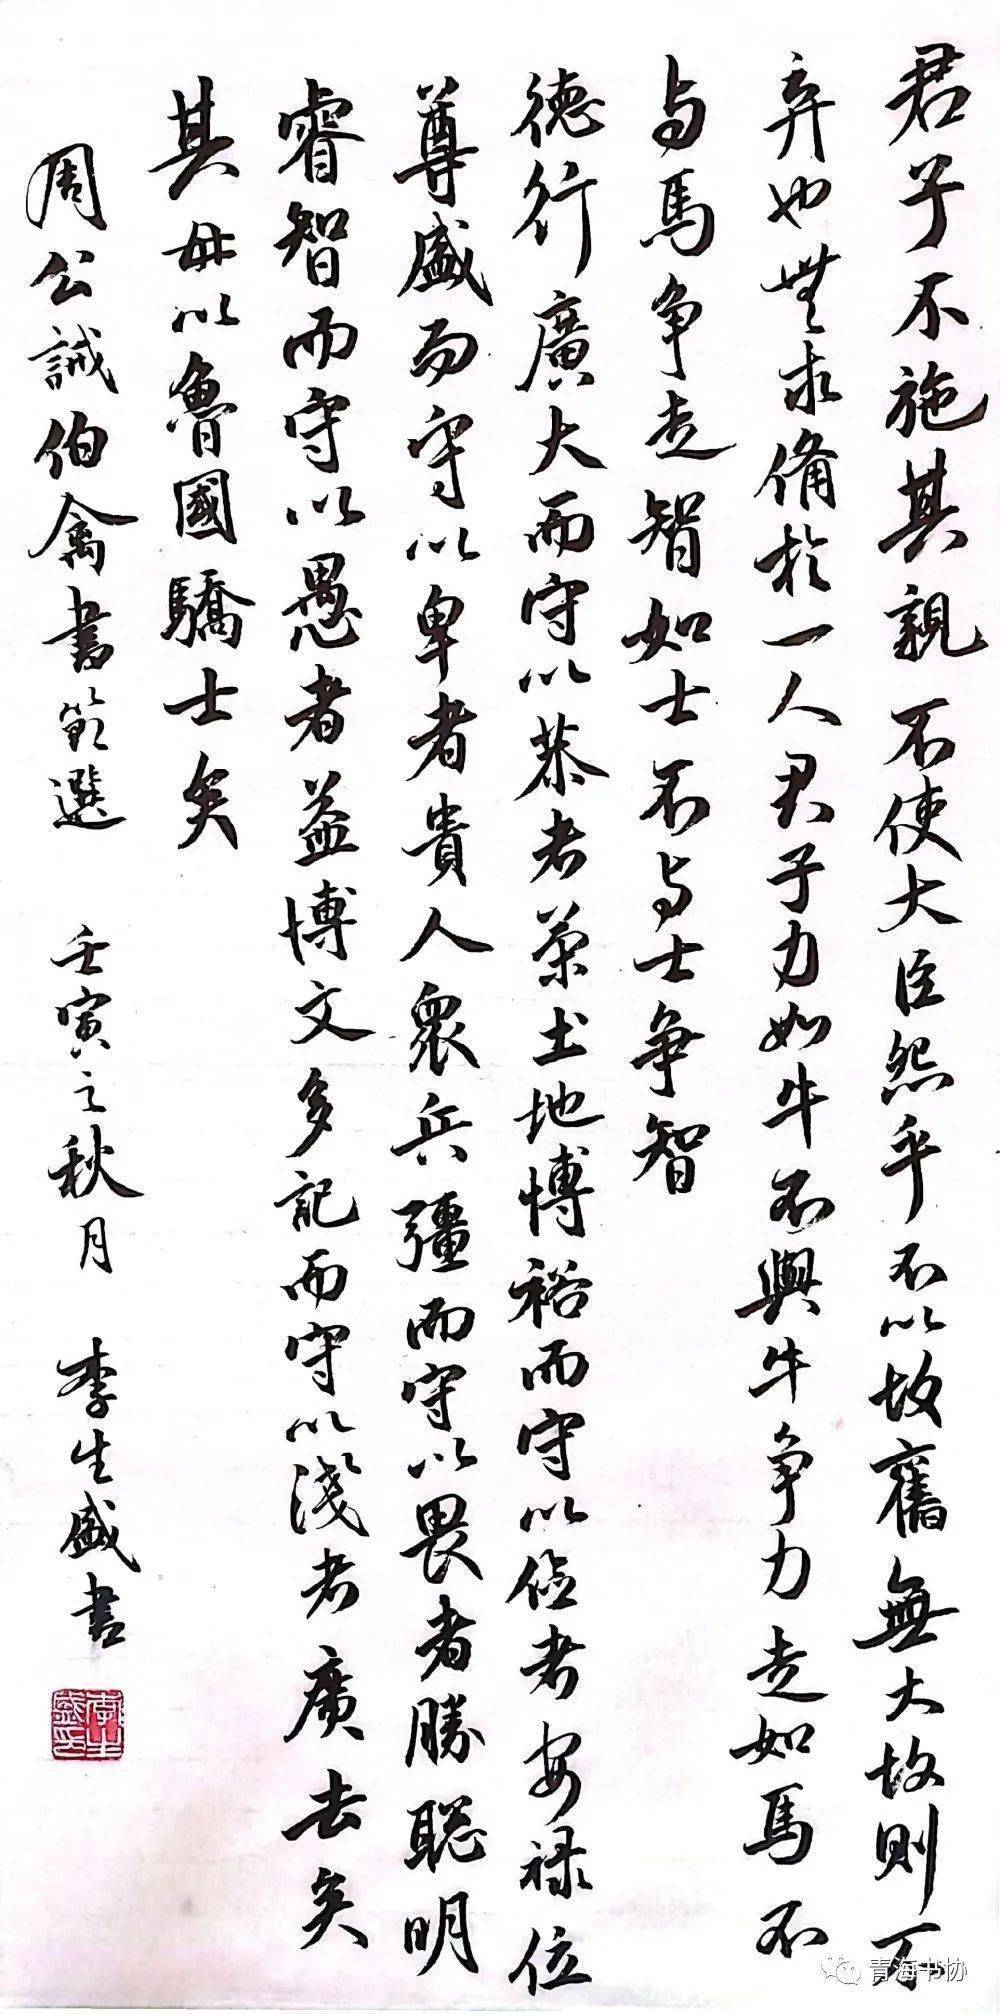 君子不施其親不使大臣怨乎不以故舊無大故則万
弃也無求備於一人君子力如牛不與牛争力走如馬不
与馬争走智如士不与士争智
德行廣大而守以恭者荣土地博裕而守以俭者安禄位
尊盛而守以卑者貴人眾兵彊而守以畏者勝聪明
睿智而守以愚者益博文多記而守以淺者廣去矣
其毋以魯國驕士矣
周公誡伯禽書節選 壬寅之秋月 李生盛書
李生盛印
青海书协